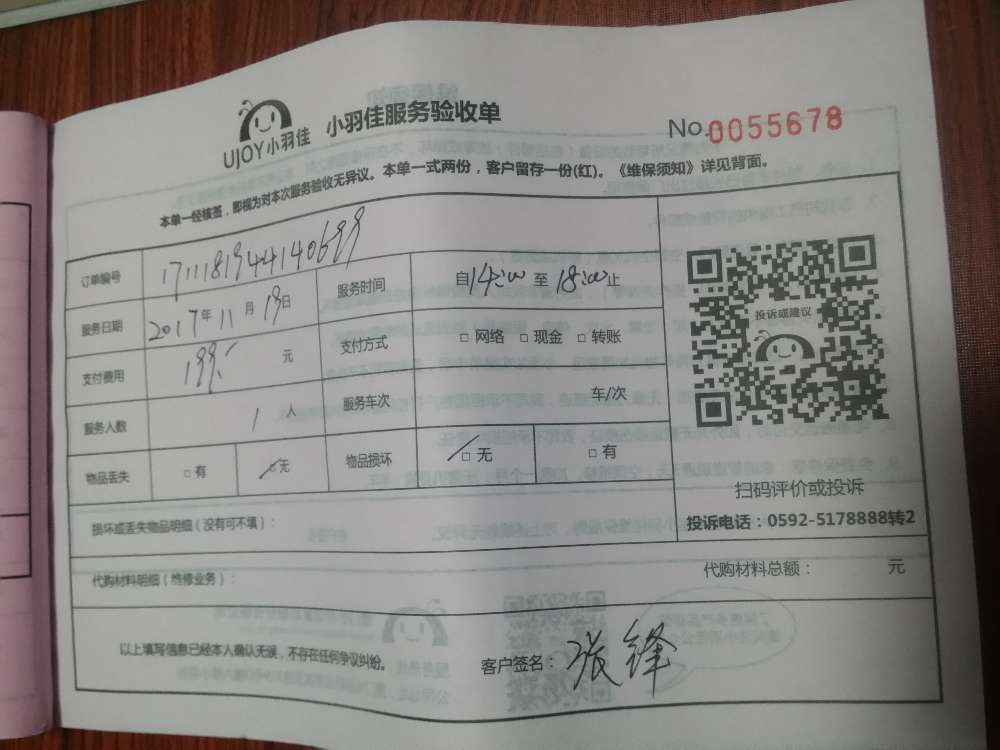 UJOY小羽佳
小羽佳服务验收单
No.0055678
本单一经核签，即视为对本次服务验收无异议。本单一式两份，客户留存一份(红)。《维保须知》详见背面。
订单编号 1711181944140699
服务日期 2017年11月19日 服务时间 自14:00至18:00止
支付费用 199. 元 支付方式 □ 网络 □ 现金 □ 转账
服务人数 1 人 服务车次 车/次
物品丢失 □ 有 □ 无 物品损坏 □ 无 □ 有
投诉或建议
扫码评价或投诉
投诉电话：0592-5178888转2
损坏或丢失物品明细（没有可不填）：
代购材料明细（维修业务）： 代购材料总额： 元
以上填写信息已经本人确认无误，不存在任何争议纠纷。 客户签名：张锋